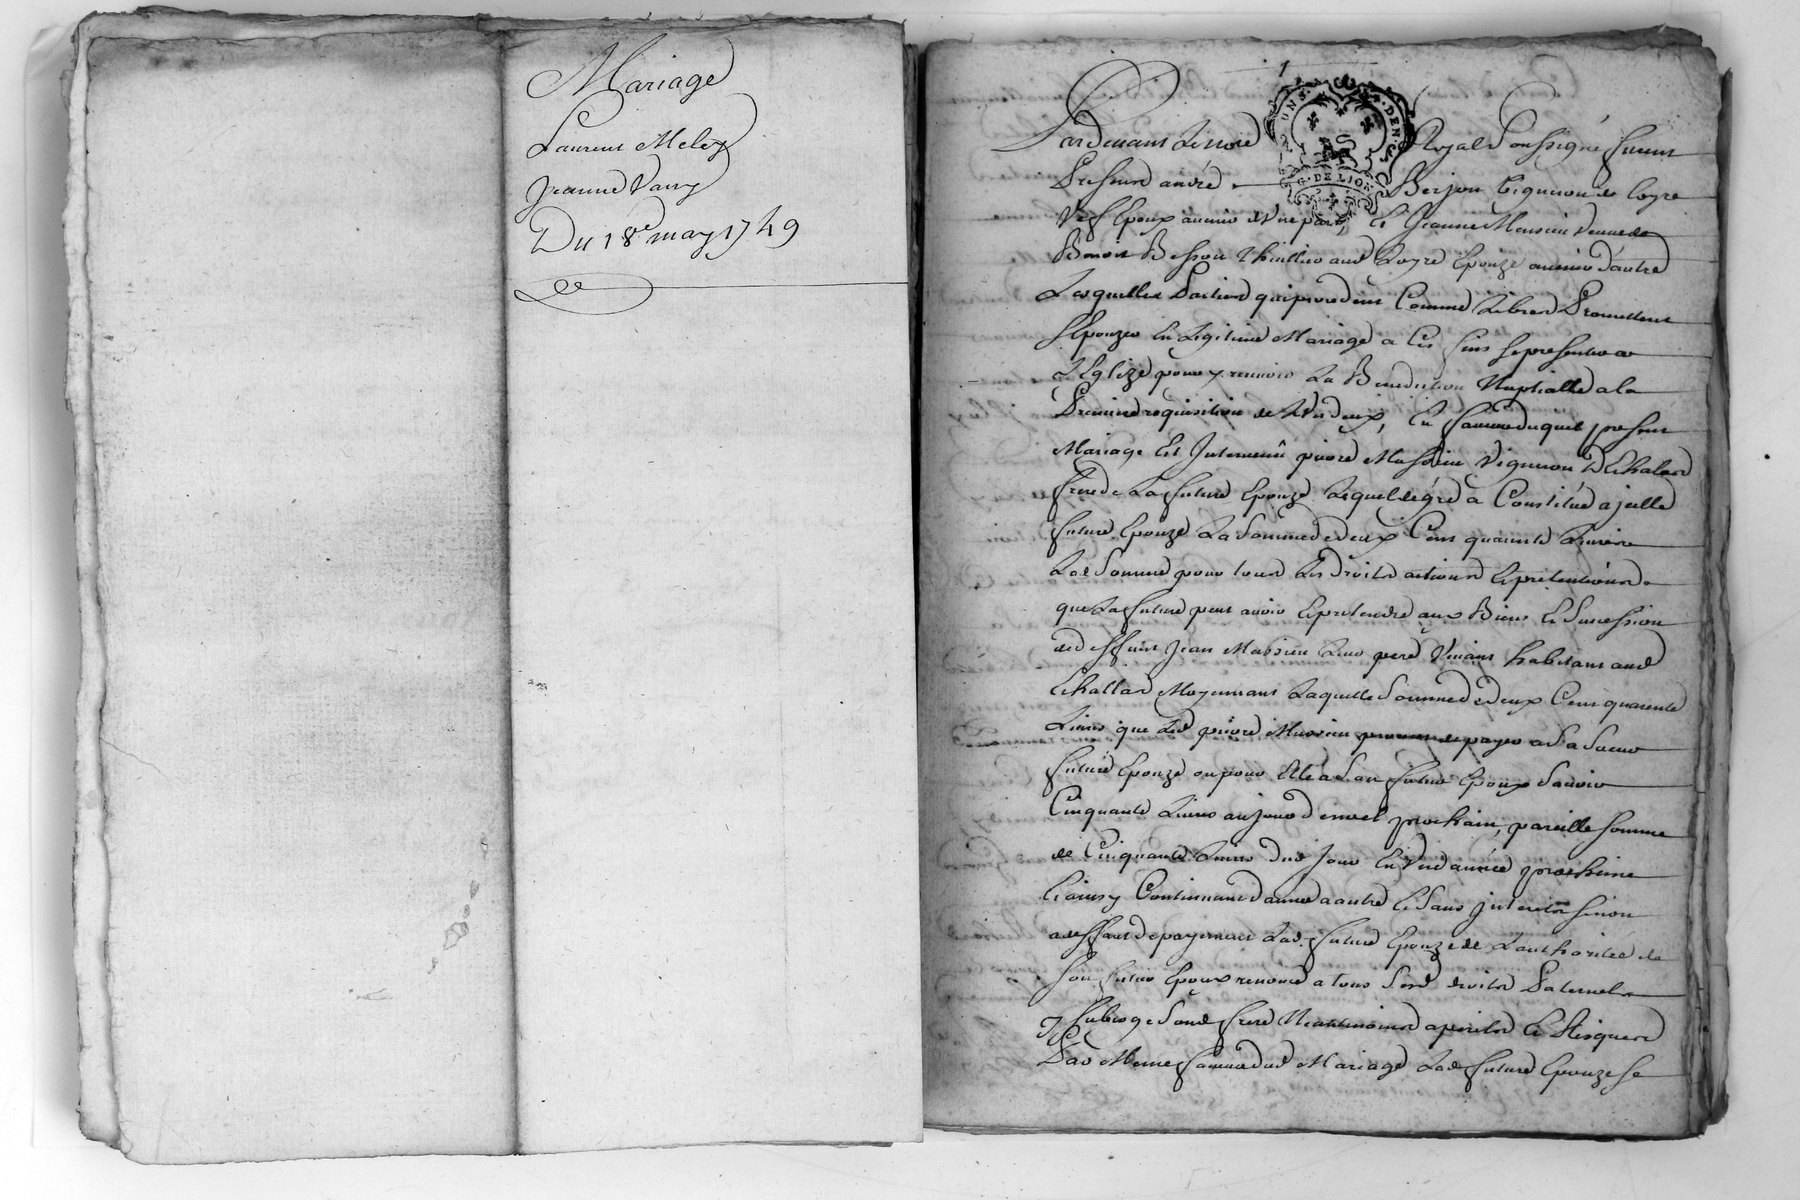 Mariage
Laurent Meley
Jeanne Vany
Du 18e may 1749
1
Pardevant Le no.re Royal Soussigné furent
Presens andré Berjon vigneron de Loyre
Epoux avenir d'Une part, Et Jeanne Massieu Veuve de
Benoit Besson Audt Loyre Epouze avenir d'autre
Lesquelles Parties qui procedent Comme Libres Promettent
s'Epouzer En Legitime Mariage a Ces fins se presenter a
L'Eglize pour y recevoir La Benediction Nuptialle a la
Premiere requisition de L'Un d'eux, En faveur duquel present
Mariage Est Intervenû pierre Massieu Vigneron D'Echalas
frere de La future Epouze Lequel de gré a Constitué a jcelle
future Epouze La Somme de deux Cent quarante Livres
Lad. Somme pour tous Les Droits actions Et pretentions
que La future peut avoir Et pretendre aux Biens Et Sucession
de deffunt Jean Massieu Leur pere Vivant habitant aud.
Echallas Moyennant Laquelle Somme de deux Cent quarente
Livres que Led. pierre Massieu promet de payer a Sa Sœur
future Epouze ou pour Elle a Son futur Epoux Savoir
Cinquante Livres au jour de noel prochain, pareille Somme
de Cinquante Livres dud. Jour En Une année prochaine
Et ainsy Continuant d'année a autre Et Sans jnterets sinon
a deffaut de payement Lad. future Epouze de L'authorité de
Son futur Epoux renonce a tous Ses d. droits Paternels
Subroge Sond. frere Neantmoins a perils Et Risques
Par Meme faveur dud. Mariage Lad. future Epouze se